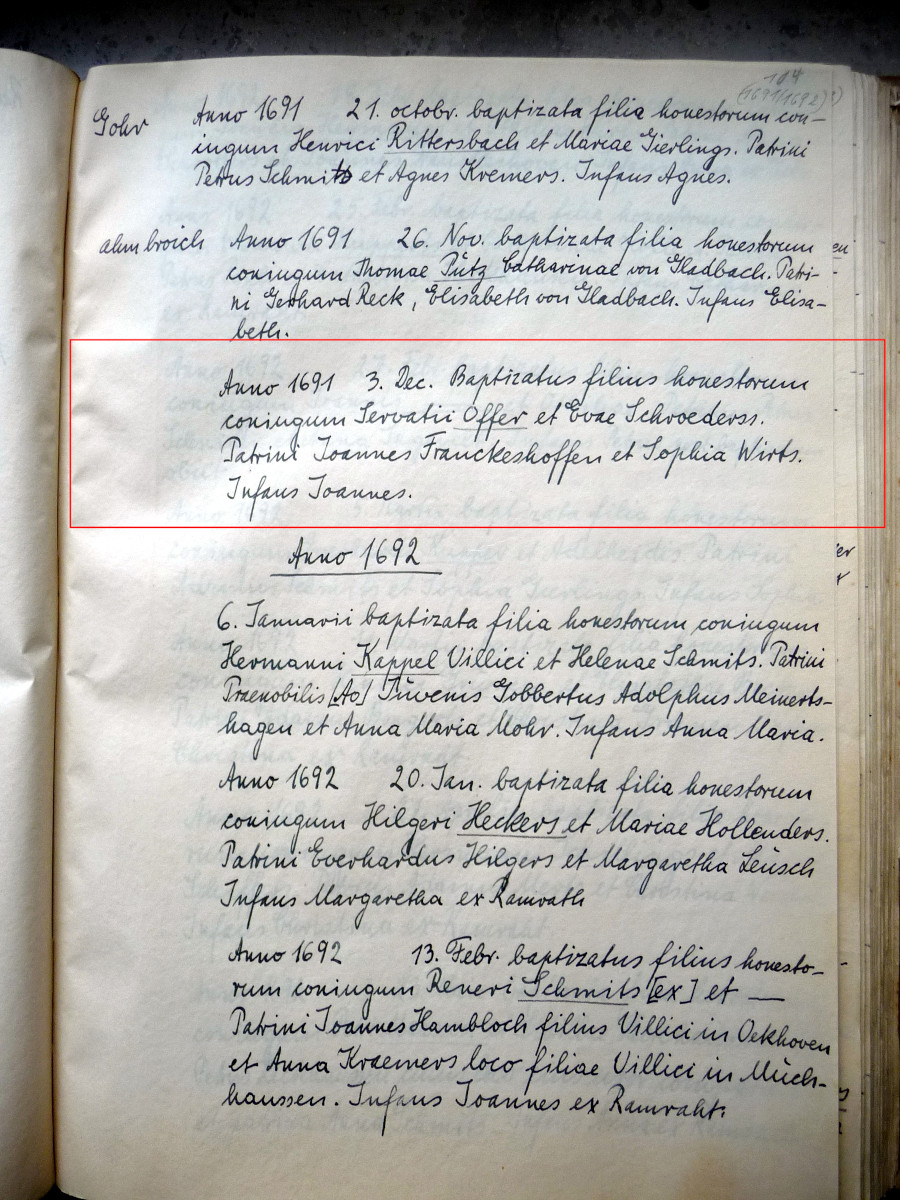 104
(1691/1692)
Gohr Anno 1691 21. octobr. baptizata filia honestorum con-
iugum Henrici Rittersbach et Mariae Gierlings. Patrini
Petrus Schmitz et Agnes Kremers. Infans Agnes.
ahmbroich Anno 1691 26. Nov. baptizata filia honestorum
coniugum Thomae Pütz Catharinae von Gladbach. Patri-
ni Gerhard Reck, Elisabeth von Gladbach. Infans Elisa-
beth.
Anno 1691 3. Dec. Baptizatus filius honestorum
coniugum Servatii Offer et Evae Schroederss.
Patrini Joannes Franckeshoffen et Sophia Wirts.
Infans Joannes.
Anno 1692
6. Januarii baptizata filia honestorum coniugum
Hermanni Kappel Villici et Helenae Schmits. Patrini
Praenobilis [Ao] Juvenis Gobbertus Adolphus Meinerts-
hagen et Anna Maria Mohr. Infans Anna Maria.
Anno 1692 20. Jan. baptizata filia honestorum
coniugum Hilgeri Heckers et Mariae Hollenders.
Patrini Everhardus Hilgers et Margaretha Leüsch
Infans Margaretha ex Ramrath
Anno 1692 13. Febr. baptizatus filius honesto-
rum coniugum Reneri Schmits [ex] et —
Patrini Joannes Hambloch filius Villici in Oekhoven
et Anna Kraemers loco filiae Villici in Müch-
haussen. Infans Joannes ex Ramraht.